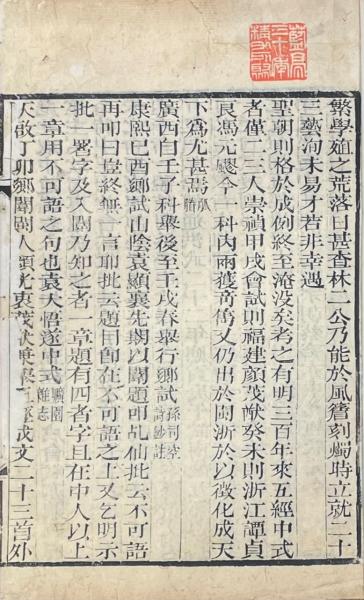 繁學殖之荒落日甚查林二公乃能於風簷刻燭時立就二十
三藝洵未易才若非幸遇
聖朝則格於成例終至淹没矣考之有明三百年來五經中式
者僅二三人崇禎甲戌會試則福建顏茂猷癸未則浙江譚貞
良馮元飈今一科內兩獲竒雋又仍出於閩浙於以徵化成天
下為尤甚焉
廣西自壬子科舉後至壬戌春舉行鄉試 孫司空詩鈔註
康熙己酉鄉試山陰袁顯襄先期以闈題叩乩仙批云不可語
再叩曰豈終無一言耶批云題目卽在不可語之上又乞明示
批一署字及入闈乃知之者一章題有四者字且在中人以上
一章用不可語之句也袁大悟遂中式 曠園雜志
天啟丁卯鄉闈閩人顏光衷茂猷
戌文二十三首外